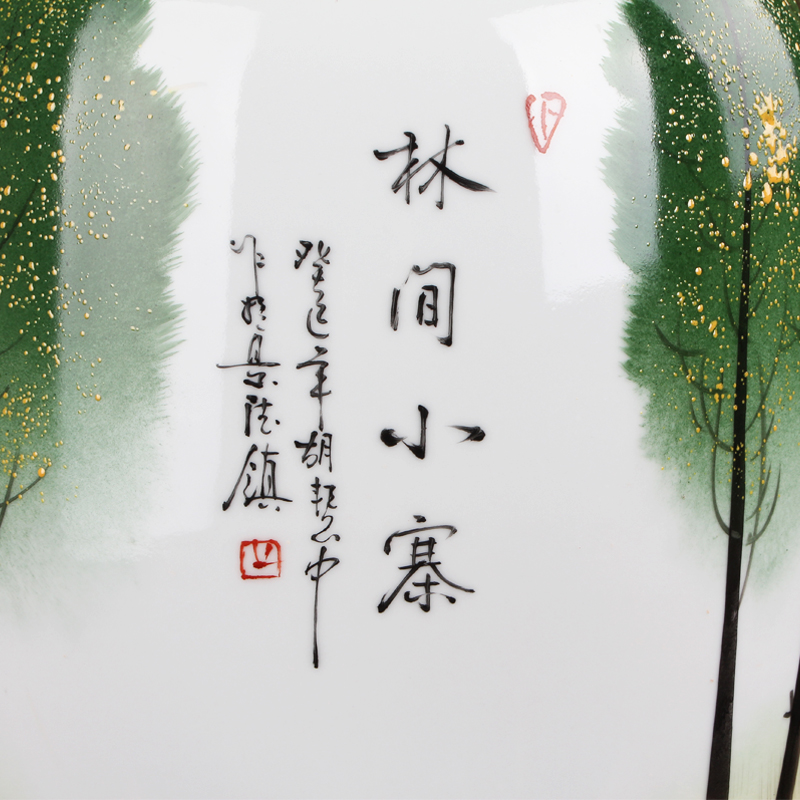 林间小寨
癸巳年胡慧中
作於景德镇